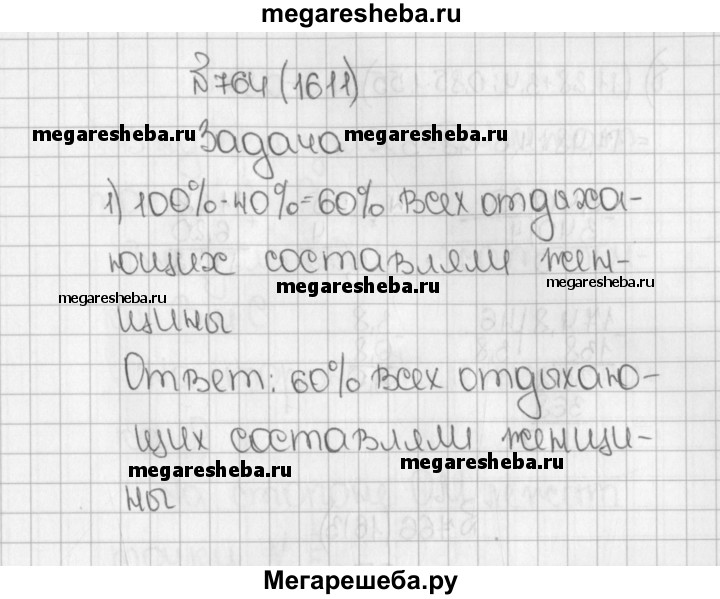 megaresheba.ru
№764 (1611)
megaresheba.ru Задача megaresheba.ru
1) 100%-40%=60% всех отдыха-
ющих составляли жен-
megaresheba.ru megaresheba.ru megaresheba.ru
щины
Ответ: 60% всех отдыхаю-
щих составляли женщи-
megaresheba.ru megaresheba.ru
ны
Мегарешеба.ру